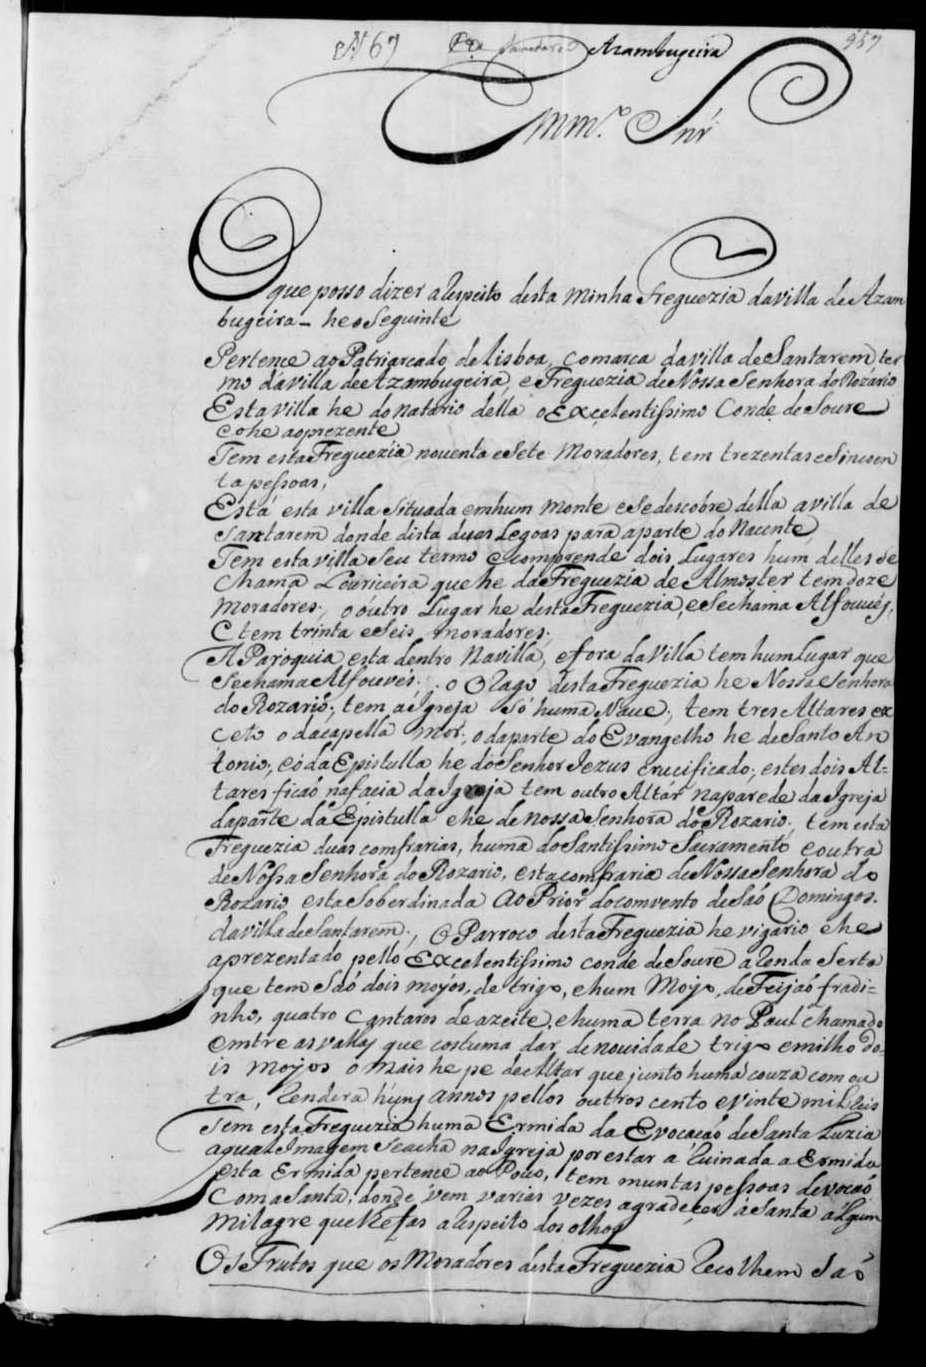 N 67 Azambugeira 957
Emm.º Snr
O que posso dizer aRespeito desta Minha Freguezia davilla de Azam
bugeira - he oSeguinte
Pertence ao Patriarcado de Lisboa, comarca davilla de Santarem ter
mo davilla de Azambugeira, e Freguezia de Nossa Senhora do Rozario
Esta villa he donatario della o Excelentissimo Conde de Soure
e o he aoprezente
Tem esta Freguezia noventa e Sete Moradores, tem trezentas e Sincoen
ta pessoas,
Está esta villa situada emhum monte e Se descobre della avilla de
Santarem donde dista duas Legoas para aparte do Nacente
Tem esta villa Seu termo e comprende dois Lugares hum delles se
Chama Louriceira que he da Freguezia de Almoster tem doze
moradores; o outro Lugar he desta Freguezia, e Sechama Alfouvés,
E tem trinta e Seis moradores;
A Paroquia esta dentro Na villa, e fora da Villa tem hum Lugar que
Sechama Alfouvés; o Orago desta Freguezia he Nossa Senhora
do Rozario; tem a Igreja Só huma Nave; tem tres Altares ex
ceto o dacapella mor; o daparte do Evangelho he de Santo An
tonio; e o da Epistulla he do Senhor Jezus crucificado; estes dois Al=
tares ficaó nafacia da Igreja tem outro Altar naparede da Igreja
daparte da Epistulla e he de nossa Senhora do Rozario; tem esta
Freguezia duas comfrarias, huma do Santissimo Sacramento e outra
de Nossa Senhora do Rozario, esta comfraria de Nossa Senhora do
Rozario esta Soberdinada ao Prior do comvento de Saó Domingos.
davilla de Santarem; O Parroco desta Freguezia he vigario e he
aprezentado pello Excelentissimo conde de Soure a Renda Serta
que tem Saó dois moyos, de trigo, e hum Moyo, de Feijaó fradi=
nho, quatro cantaros de azeite, e huma terra no Paul chamado
emtre as vallas que costuma dar de novidade trigo e milho do
is moyos o mais he pe de Altar que junto huma couza com ou
tra, Renderá huns annos pellos outros cento e vinte mil Reis
Tem esta Freguezia huma Ermida da Evocaçaó de Santa Luzia
aqual Imagem Seacha na Igreja por estar a Ruinada a Ermida
esta Ermida pertence ao Povo, tem muntas pessoas devoçaó
Com a Santa; donde vem varias vezes agradeçer á Santa algum
milagre que lhe fas a Respeito dos olhos
Os Frutos que os Moradores desta Freguezia Recolhem Saó